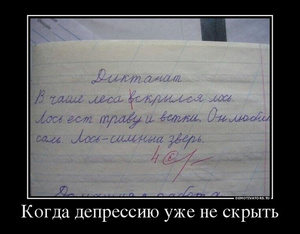 Диктант
В чаще леса скрылся лось.
Лось ест траву и ветки. Он любит
соль. Лось-симныа зверь.
4
Домашняя работа
Когда депрессию уже не скрыть